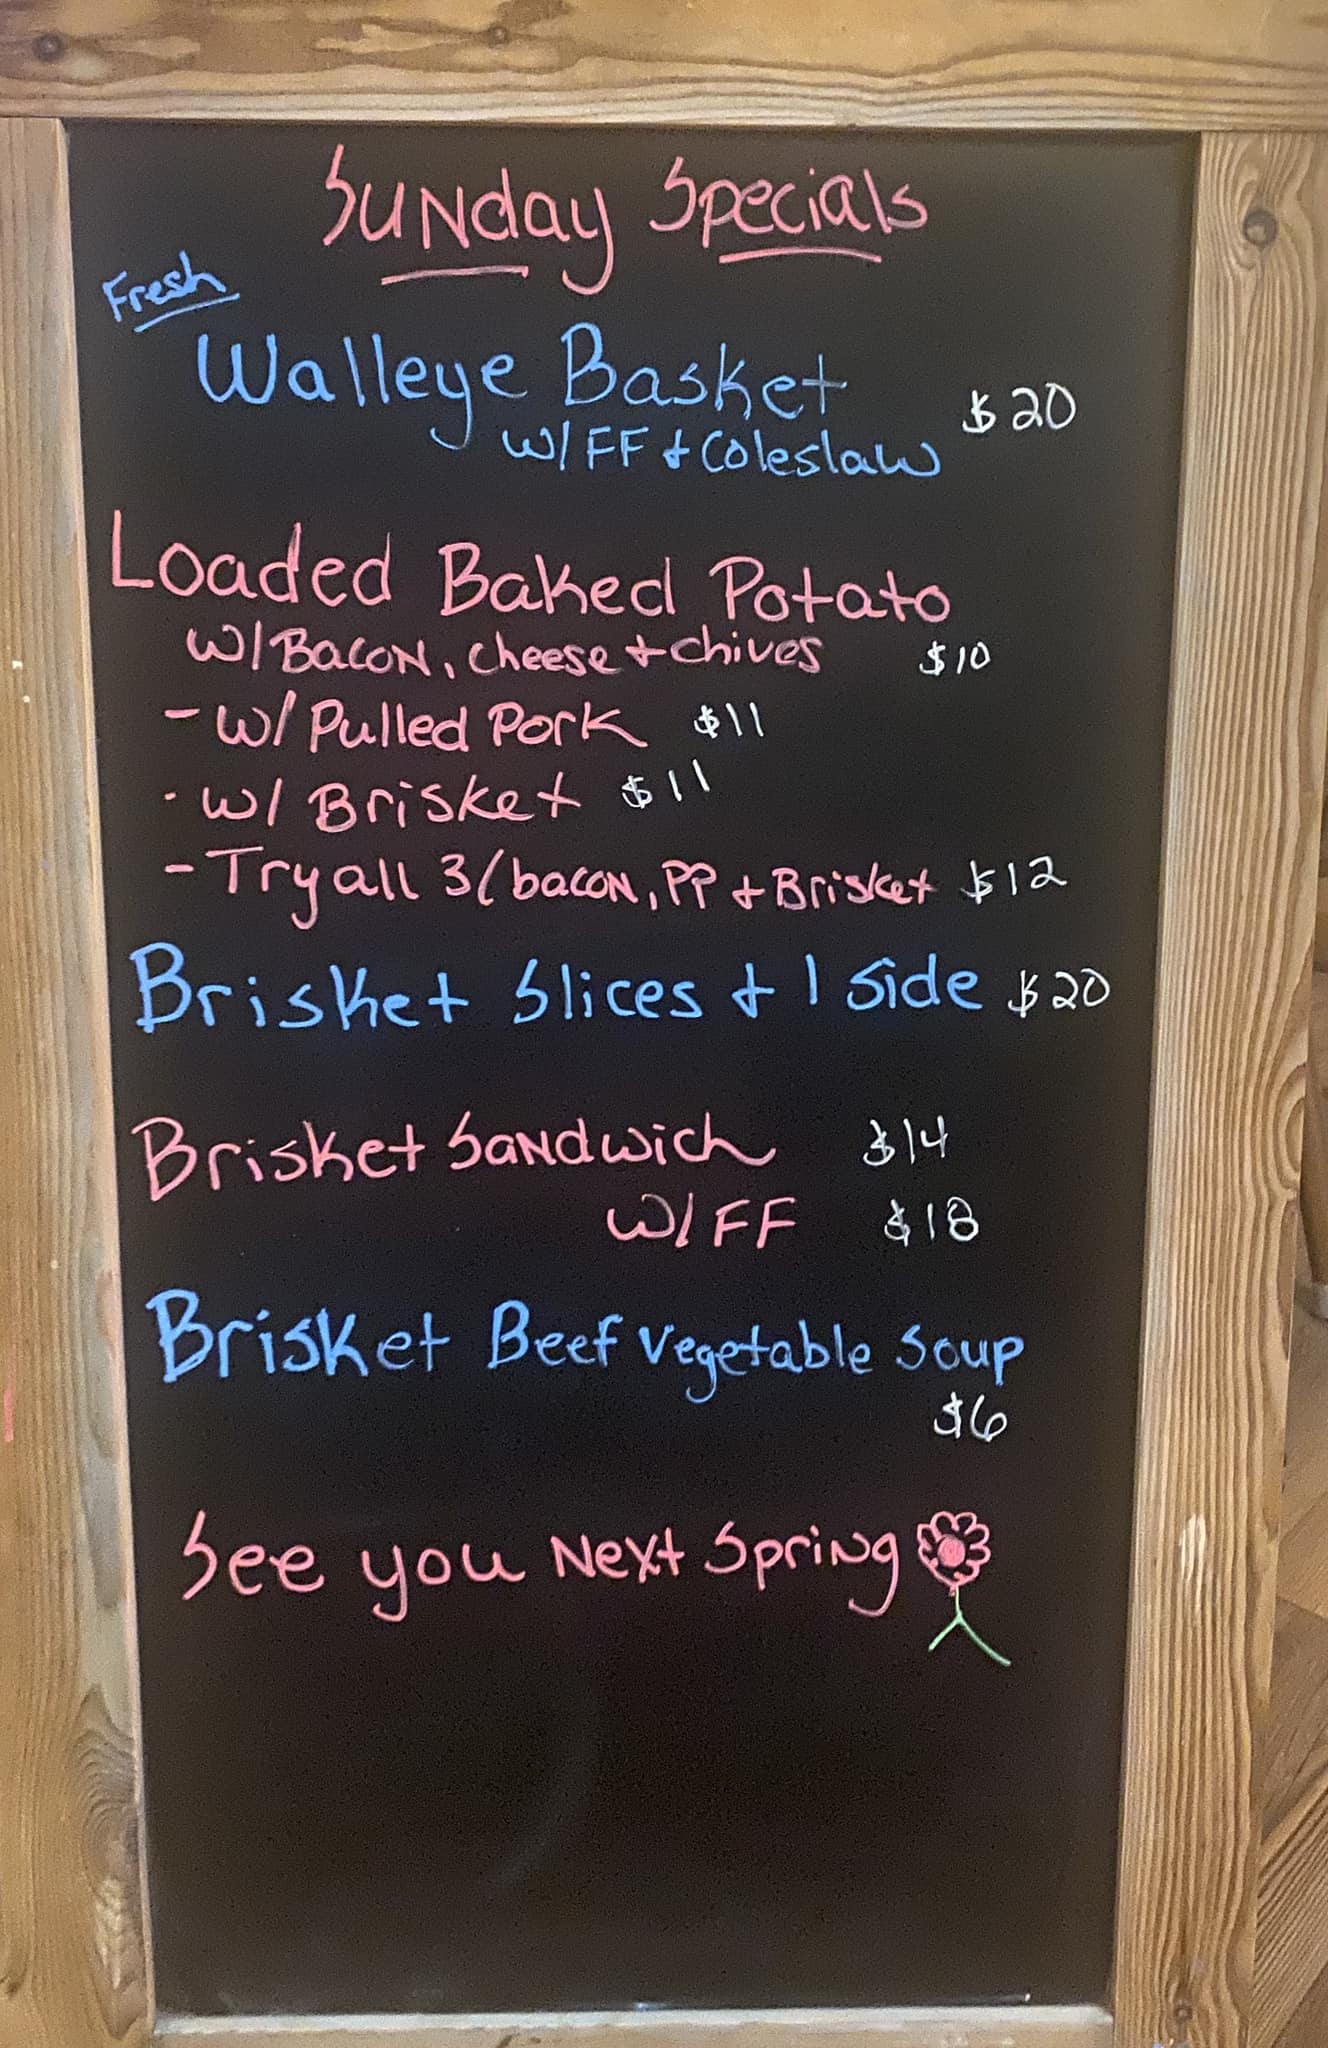 Sunday Specials
Fresh
Walleye Basket $20
w/ FF + Coleslaw
Loaded Baked Potato
w/ Bacon, cheese + chives $10
- w/ Pulled Pork $11
- w/ Brisket $11
- Try all 3 / bacon, PP + Brisket $12
Brisket Slices + 1 Side $20
Brisket Sandwich $14
w/ FF $18
Brisket Beef Vegetable Soup
$6
See you Next Spring